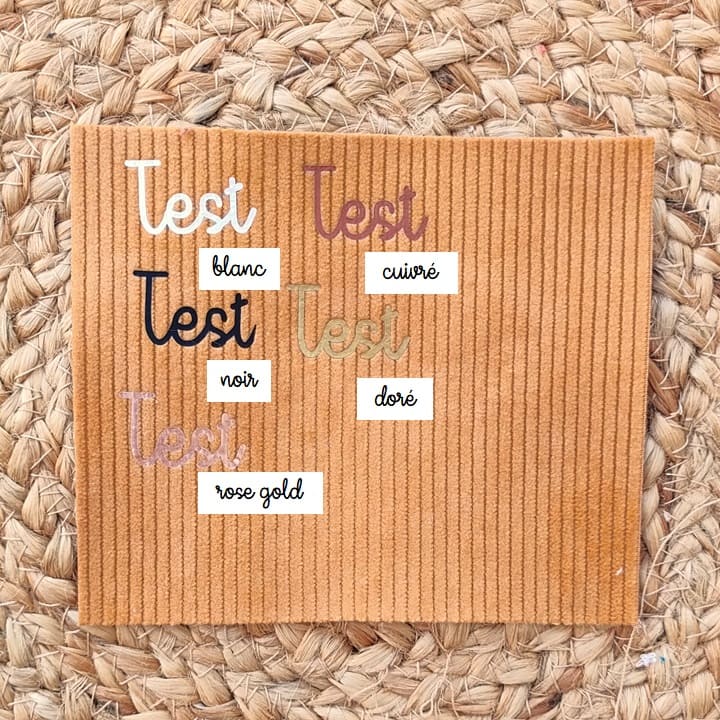 Test
blanc
Test
cuivré
Test
noir
Test
doré
Test
rose gold